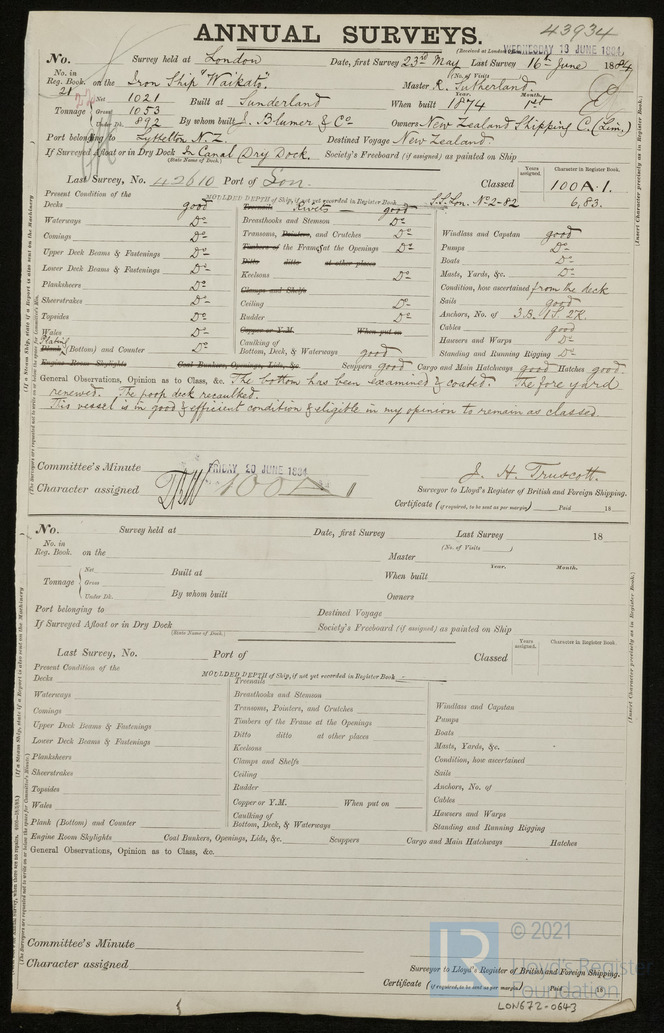 43934
ANNUAL SURVEYS.
(Received at London Office WEDNESDAY 18 JUNE 1884)
No. Survey held at London Date, first Survey 23rd May Last Survey 16th June 1884
No. in Reg. Book. 21 on the Iron Ship "Waikato". Master R. Sutherland.
(No. of Visits
Tonnage Net 1021 Built at Sunderland When built 1874 Year. Month. 1st
Gross 1053
Under Dk. 892 By whom built J. Blumer & Co Owners New Zealand Shipping C. (Lim.)
Port belonging to Lyttelton N.Z. Destined Voyage New Zealand.
If Surveyed Afloat or in Dry Dock In Canal Dry Dock. Society's Freeboard (if assigned) as painted on Ship
(State Name of Dock.)
Last Survey, No. 42610 Port of Lon. Classed Years assigned. Character in Register Book. 100 A.1.
MOULDED DEPTH of Ship, if not yet recorded in Register Book S.S. Lon. No 2-82 6,83.
Present Condition of the
Decks good
Waterways Do
Comings Do
Upper Deck Beams & Fastenings Do
Lower Deck Beams & Fastenings Do
Planksheers Do
Sheerstrakes Do
Topsides Do
Wales Do
Plating
Plank (Bottom) and Counter Do
Treenails Rivets good
Breasthooks and Stemson Do
Transoms, Pointers, and Crutches Do
Timbers of the Frames at the Openings Do
Ditto ditto at other places
Keelsons Do
Clamps and Shelfs
Ceiling Do
Rudder Do
Copper or Y.M. When put on
Caulking of Bottom, Deck, & Waterways good
Windlass and Capstan good
Pumps Do
Boats Do
Masts, Yards, &c. Do
Condition, how ascertained from the deck
Sails good
Anchors, No. of 3.B. 1S. 2K.
Cables good
Hawsers and Warps Do
Standing and Running Rigging Do
Engine Room Skylights Coal Bunkers, Openings, Lids, &c. Scuppers good Cargo and Main Hatchways good Hatches good.
General Observations, Opinion as to Class, &c. The bottom has been examined & coated. The fore yard
renewed. The poop deck recaulked.
This vessel is in good & efficient condition & eligible in my opinion to remain as classed
Committee's Minute FRIDAY 20 JUNE 1884
J. H. Truscott.
Character assigned 100 A 1
Surveyor to Lloyd's Register of British and Foreign Shipping.
Certificate (if required, to be sent as per margin) Paid 18
No. Survey held at Date, first Survey Last Survey 18
(No. of Visits )
No. in Reg. Book. on the Master
Year. Month.
Tonnage Net Built at When built
Gross
Under Dk. By whom built Owners
Port belonging to Destined Voyage
If Surveyed Afloat or in Dry Dock Society's Freeboard (if assigned) as painted on Ship
(State Name of Dock.)
Last Survey, No. Port of Classed Years assigned. Character in Register Book.
MOULDED DEPTH of Ship, if not yet recorded in Register Book
Present Condition of the
Decks
Waterways
Comings
Upper Deck Beams & Fastenings
Lower Deck Beams & Fastenings
Planksheers
Sheerstrakes
Topsides
Wales
Plank (Bottom) and Counter
Treenails
Breasthooks and Stemson
Transoms, Pointers, and Crutches
Timbers of the Frame at the Openings
Ditto ditto at other places
Keelsons
Clamps and Shelfs
Ceiling
Rudder
Copper or Y.M. When put on
Caulking of Bottom, Deck, & Waterways
Windlass and Capstan
Pumps
Boats
Masts, Yards, &c.
Condition, how ascertained
Sails
Anchors, No. of
Cables
Hawsers and Warps
Standing and Running Rigging
Engine Room Skylights Coal Bunkers, Openings, Lids, &c. Scuppers Cargo and Main Hatchways Hatches
General Observations, Opinion as to Class, &c.
Committee's Minute
Character assigned
Surveyor to Lloyd's Register of British and Foreign Shipping.
Certificate (if required, to be sent as per margin) Paid 18
(Insert Character precisely as in Register Book.)
(Insert Character precisely as in Register Book.)
© 2021
LR
Lloyd's Register
Foundation
LON672-0643